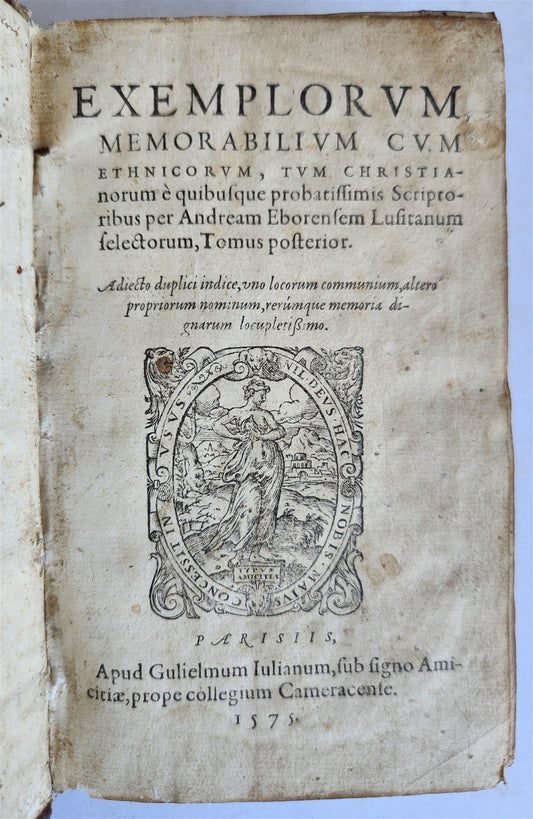 EXEMPLORVM,
MEMORABILIVM CVM
ETHNICORVM, TVM CHRISTIA-
norum è quibuſque probatiſſimis Scripto-
ribus per Andream Eborenſem Luſitanum
ſelectorum, Tomus poſterior.
Adiecto duplici indice, vno locorum communium, altero
propriorum nominum, rerúmque memoria di-
gnarum locupletißimo.
NIL DEVS HAC NOBIS MAIVS CONCESSIT IN VSVS
TYPVS
AMICITIÆ
PARISIIS,
Apud Gulielmum Iulianum, ſub ſigno Ami-
citiæ, prope collegium Cameracenſe.
1575.